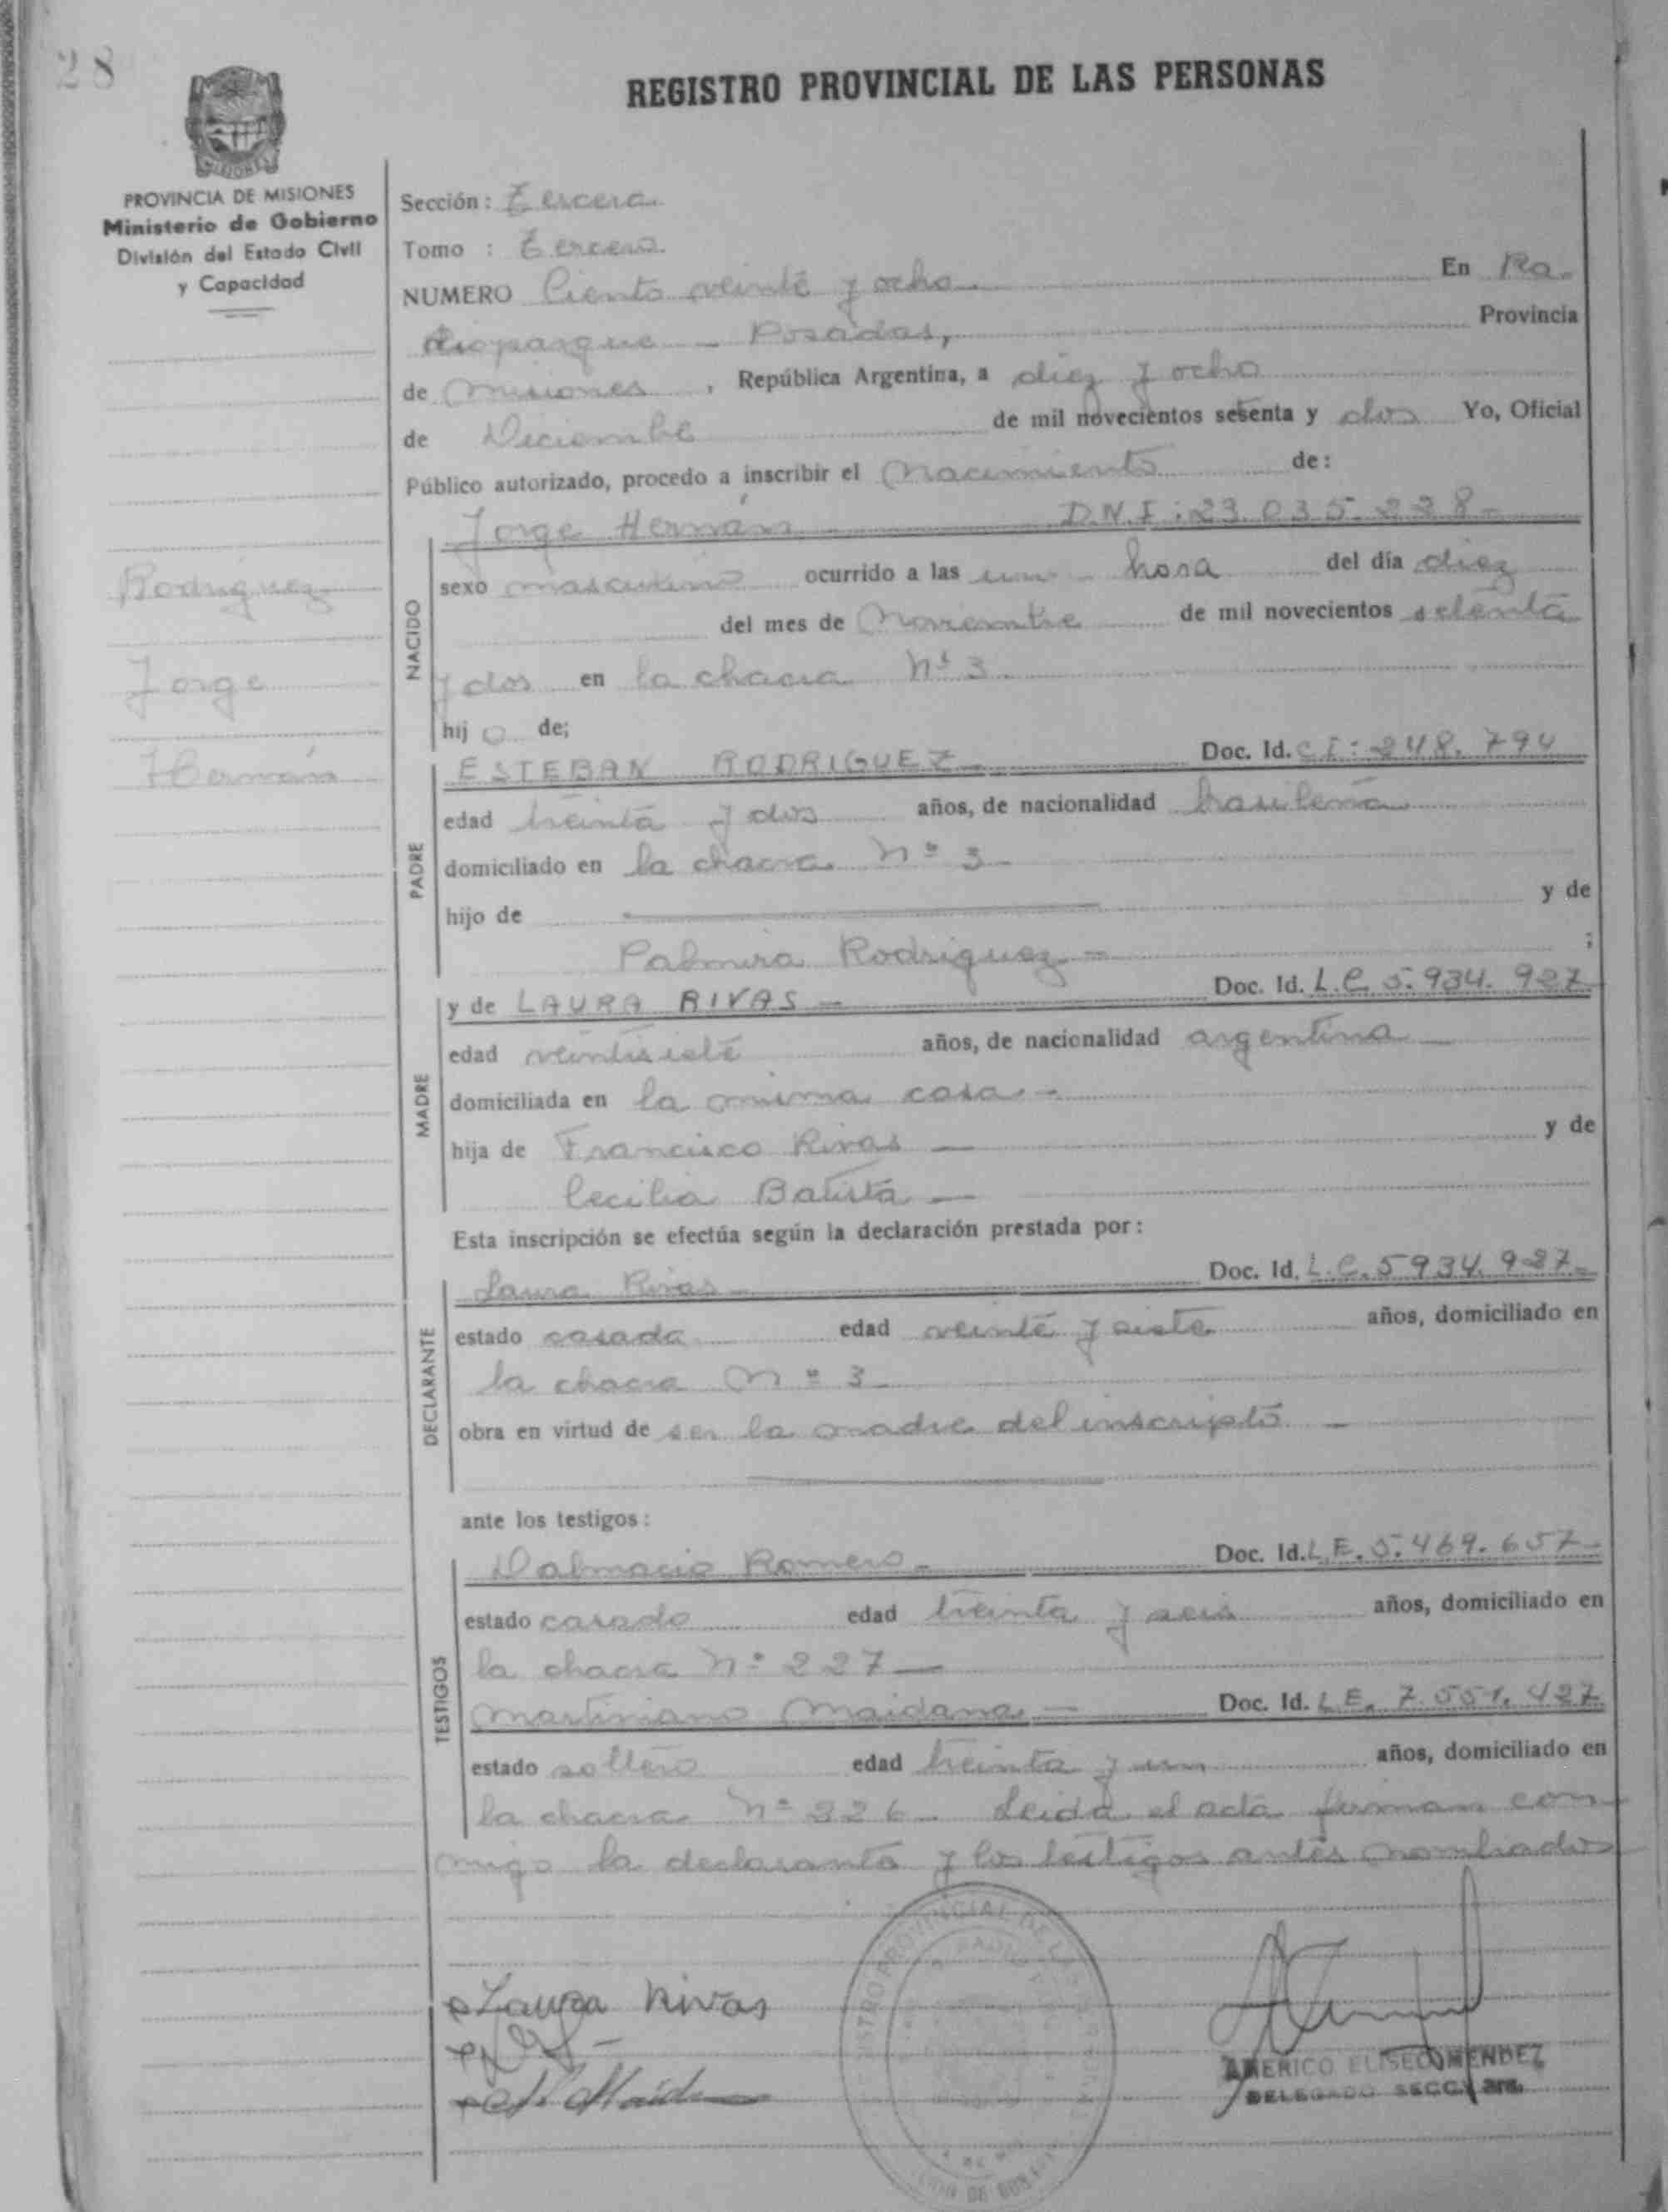 28
REGISTRO PROVINCIAL DE LAS PERSONAS
MISIONES
PROVINCIA DE MISIONES
Ministerio de Gobierno
División del Estado Civil
y Capacidad
Sección: Tercera
Tomo : Tercero
NUMERO Ciento veinte y ocho En Ra-
dioparque - Posadas, Provincia
de Misiones, República Argentina, a diez y ocho
de Diciembre de mil novecientos setenta y dos Yo, Oficial
Público autorizado, procedo a inscribir el nacimiento de:
Jorge Hernán D.N.I: 23.035.228-
NACIDO
sexo masculino ocurrido a las un hora del día diez
del mes de Noviembre de mil novecientos setenta
y dos en la chacra Nº 3
hijo de;
Rodriguez
Jorge
Hernán
PADRE
ESTEBAN RODRIGUEZ Doc. Id. C I: 248.794
edad treinta y dos años, de nacionalidad brasileña
domiciliado en la chacra nº 3
hijo de y de
Palmira Rodriguez - ;
MADRE
y de LAURA RIVAS - Doc. Id. L.C. 5.934.927
edad veintisiete años, de nacionalidad argentina
domiciliada en la misma casa -
hija de Francisco Rivas - y de
Cecilia Batista -
Esta inscripción se efectúa según la declaración prestada por:
DECLARANTE
Laura Rivas Doc. Id. L.C. 5934.927-
estado casada edad veinte y siete años, domiciliado en
la chacra nº 3
obra en virtud de ser la madre del inscripto -
ante los testigos:
TESTIGOS
Dalmacio Romero - Doc. Id. L.E. 5.469.657-
estado casado edad treinta y seis años, domiciliado en
la chacra nº 227 -
Martiniano Maidana - Doc. Id. L E. 7.551.427
estado soltero edad treinta y un años, domiciliado en
la chacra nº 226 - Leida el acta firman con-
migo la declaranta y los testigos antes nombrados
Laura Rivas
Maid
AMERICO ELISEO MENDEZ
DELEGADO SECC. 3ra.